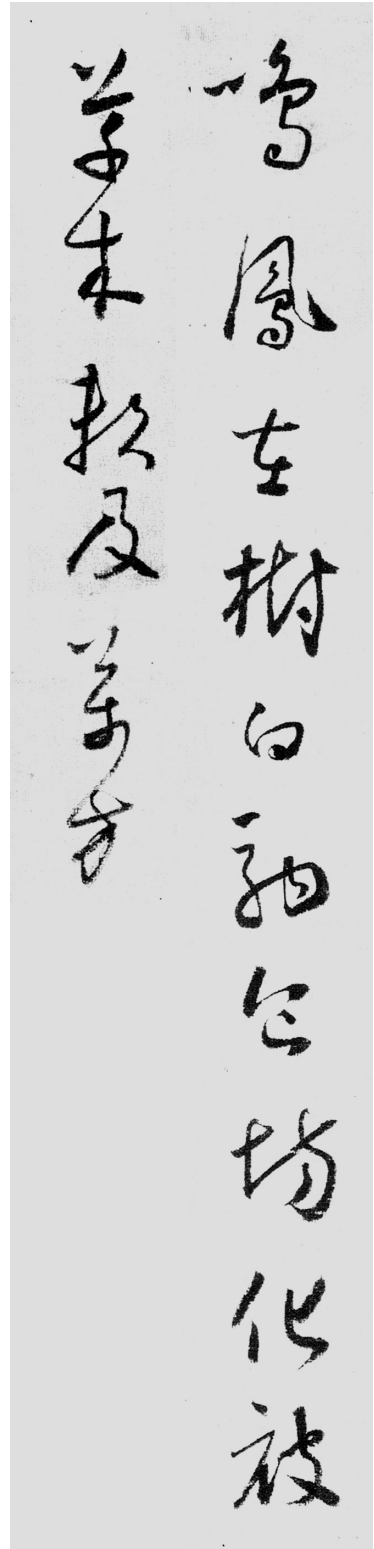 鳴鳳在樹白駒食場化被
草木賴及萬方